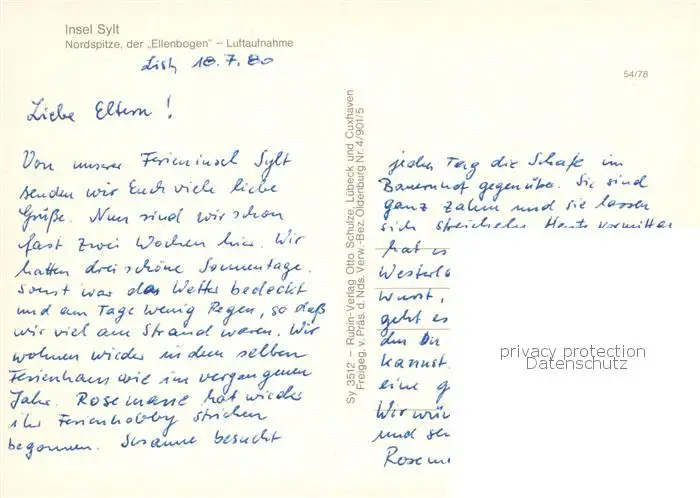 Insel Sylt
Nordspitze, der „Ellenbogen" – Luftaufnahme
List, 18.7.80
54/78
Liebe Eltern!
Von unserer Ferieninsel Sylt
senden wir Euch viele liebe
Grüße. Nun sind wir schon
fast zwei Wochen hier. Wir
hatten drei schöne Sonnentage.
Sonst war das Wetter bedeckt
und am Tage wenig Regen, so daß
wir viel am Strand waren. Wir
wohnen wieder in dem selben
Ferienhaus wie im vergangenen
Jahr. Rosemarie hat wieder
ihr Ferienhobby stricken
begonnen. Susanne besucht
Sy 3512 – Rubin-Verlag Otto Schulze, Lübeck und Cuxhaven
Freigeg. v. Präs. d. Nds. Verw.-Bez Oldenburg Nr. 4/901/5
jeden Tag die Schafe im
Bauernhof gegenüber. Sie sind
ganz zahm und sie lassen
sich streicheln. Heute vormittag
hat es
Westerl
wurst,
geht es
den Du
kannst.
eine g
Wir wün
und se
Rosem
privacy protection
Datenschutz